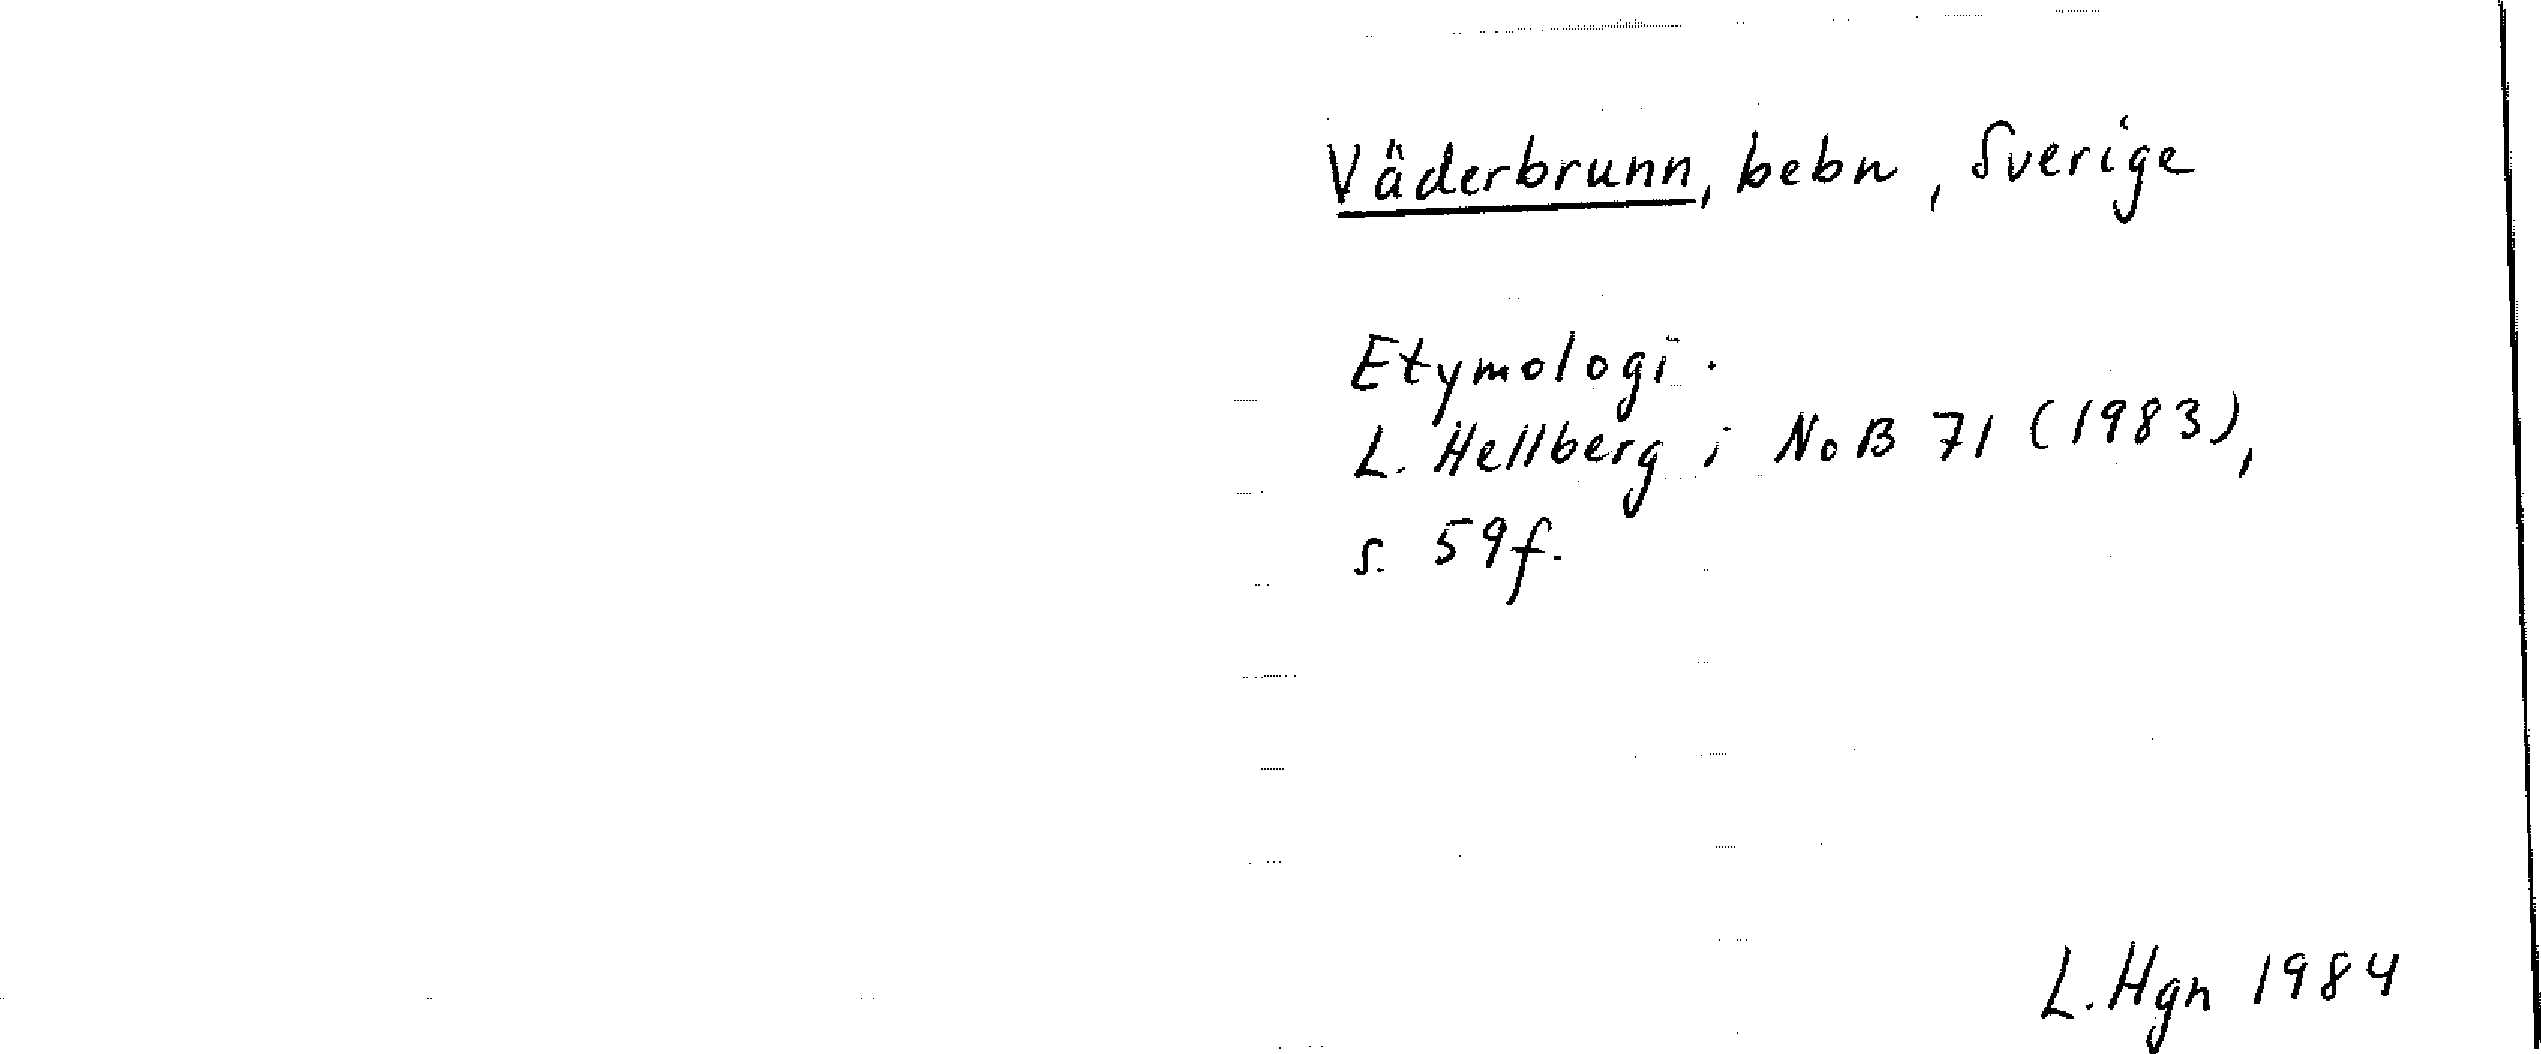 Väderbrunn, bebn, Sverige
Etymologi.
L. Hellberg i NoB 71 (1983),
s. 59f.
L. Hgn 1984